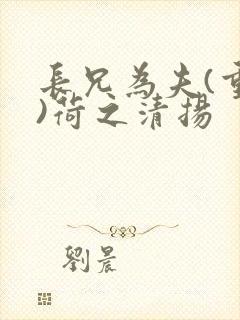 長兄為夫(重
)荷之清揚
劉晨